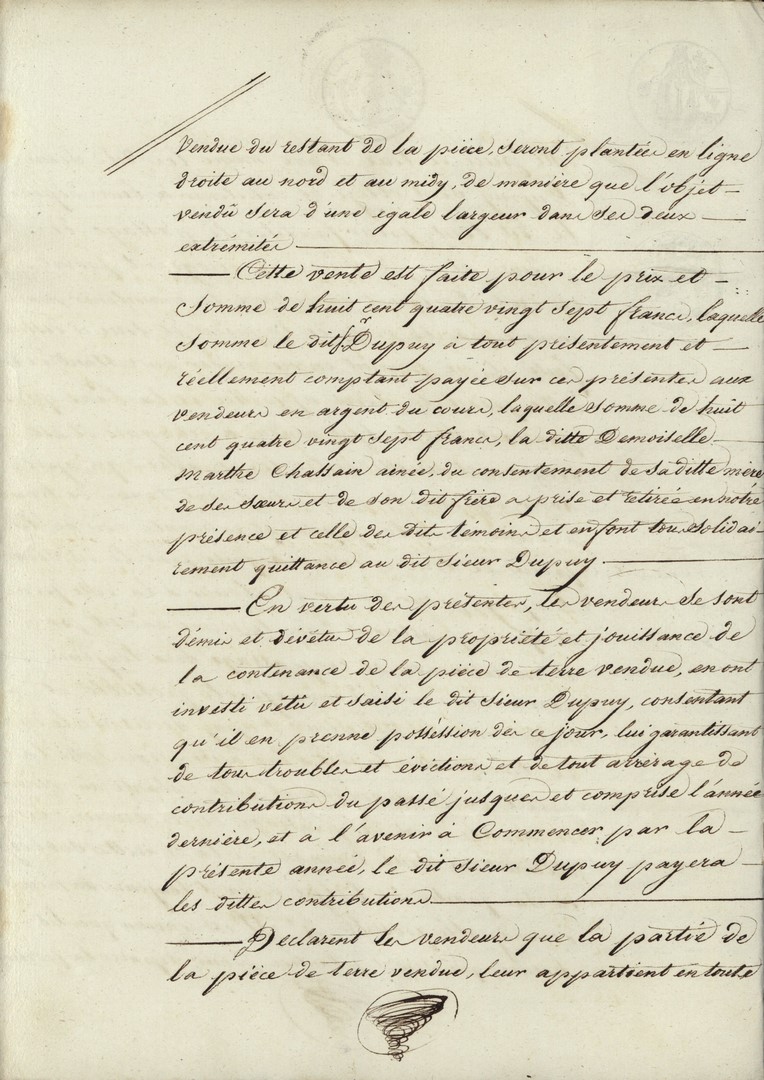 vendue du restant de la pièce, seront plantées en ligne
droite au nord et au midy, de manière que l'objet
vendu sera d'une égale largeur dans ses deux
extrémités
Cette vente est faite pour le prix et
somme de huit cent quatre vingt sept francs, laquelle
somme le dit Sr Dupuy à tout présentement et
réellement comptant payée sur ces présentes aux
vendeurs en argent du cours, laquelle somme de huit
cent quatre vingt sept francs, la ditte Demoiselle
Marthe Chassain ainée, du consentement de sa ditte mère
de ses sœurs et de son dit frère a prise et retirée en notre
présence et celle des dits témoins et en font tous solidai-
rement quittance au dit Sieur Dupuy
En vertu des présentes, les vendeurs se sont
démis et dévétus de la propriété et jouissance de
la contenance de la pièce de terre vendue, en ont
investi vétu et saisi le dit Sieur Dupuy, consentant
qu'il en prenne posséssion dès ce jour, lui garantissant
de tous troubles et évictions et de tout arrérage de
contributions du passé jusques et comprise l'année
dernière, et à l'avenir à Commencer par la
présente année, le dit Sieur Dupuy payera
les dittes contributions
Déclarent les vendeurs que la partie de
la pièce de terre vendue, leur appartient en toute